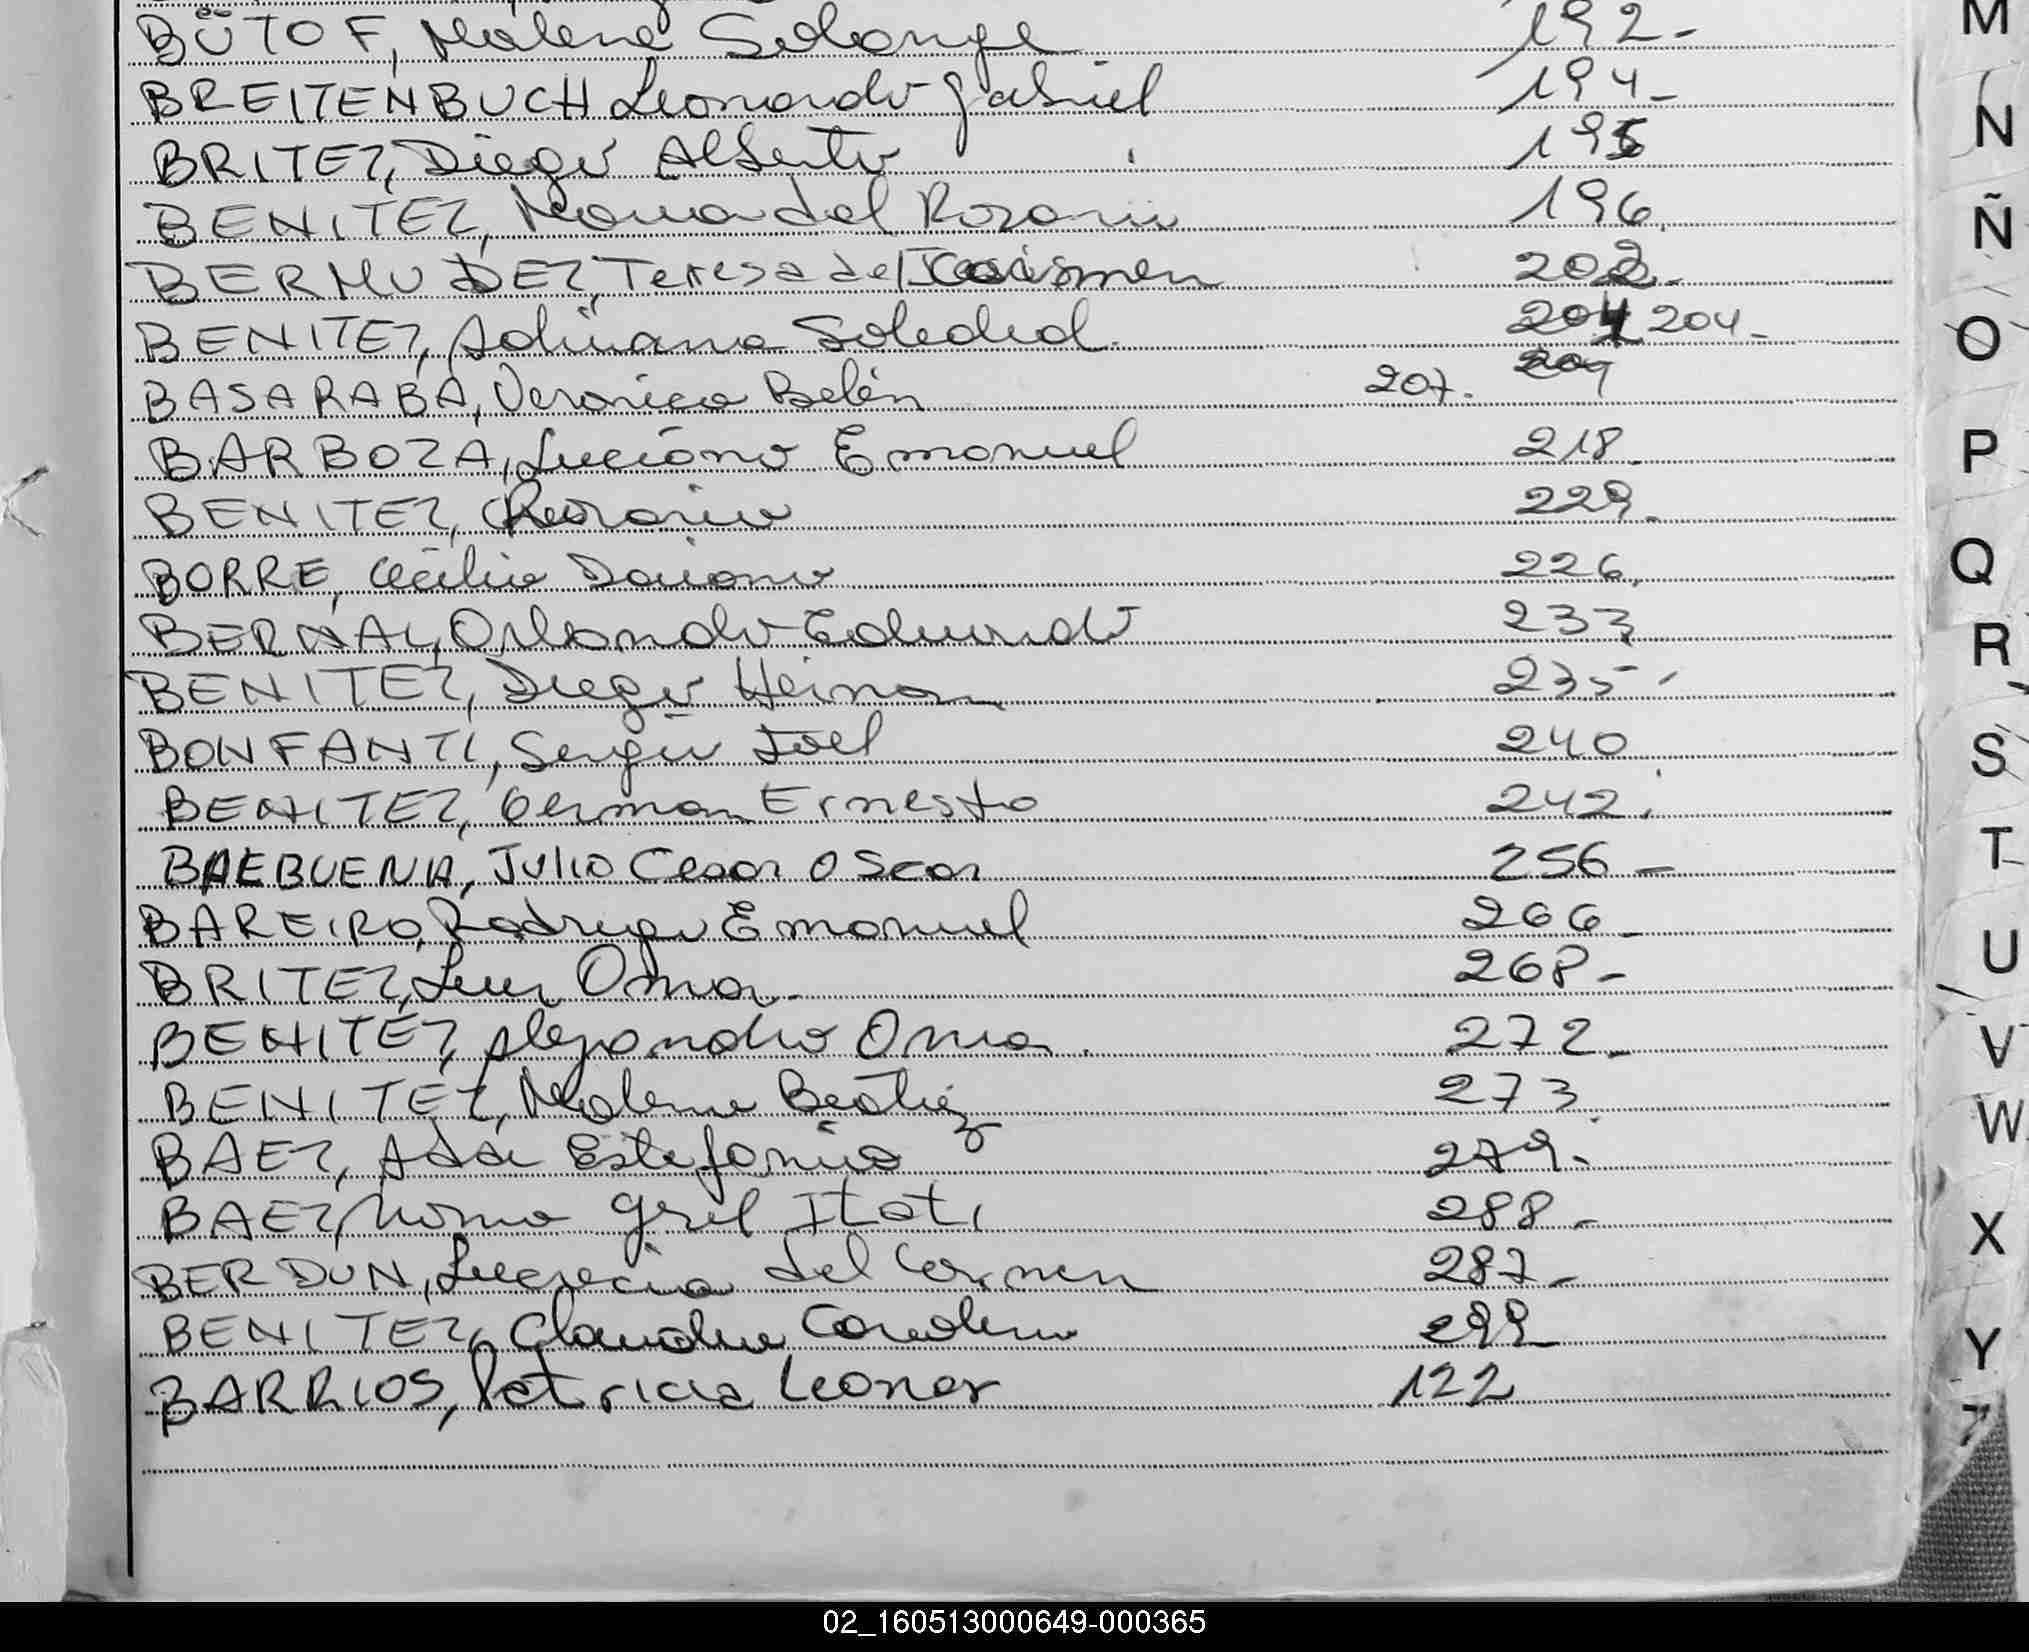 BÜTOF, Malena Solange 192-
BREITENBUCH Leonardo Gabriel 194-
BRITEZ, Diego Alberto 195
BENITEZ, Maria del Rosario 196
BERMUDEZ, Teresa del Carmen 202-
BENITEZ, Adriana Soledad 204 204-
BASARABA, Veronica Belén 207. 209
BARBOZA, Luciano Emanuel 218.
BENITEZ, Rosario 229.
BORRE, Cecilia Daiana 226.
BERNAL, Orlando Edmundo 233
BENITEZ, Diego Hernan 235-
BONFANTI, Sergio Joel 240
BENITEZ, German Ernesto 242.
BAEBUENA, Julio Cesar Oscar 256-
BAREIRO, Rodrigo Emanuel 266-
BRITEZ, Luis Omar 268-
BENITEZ, Alejandro Omar. 272-
BENITEZ, Malena Beatriz 273.
BAEZ, Ada Estefania 279.
BAEZ, Norma Itati 288-
BERDUN, Lucrecia del Carmen 287-
BENITEZ, Claudia Carolina 299-
BARRIOS, Patricia Leonor 122
M
N
Ñ
O
P
Q
R
S
T
U
V
W
X
Y
Z
02_160513000649-000365